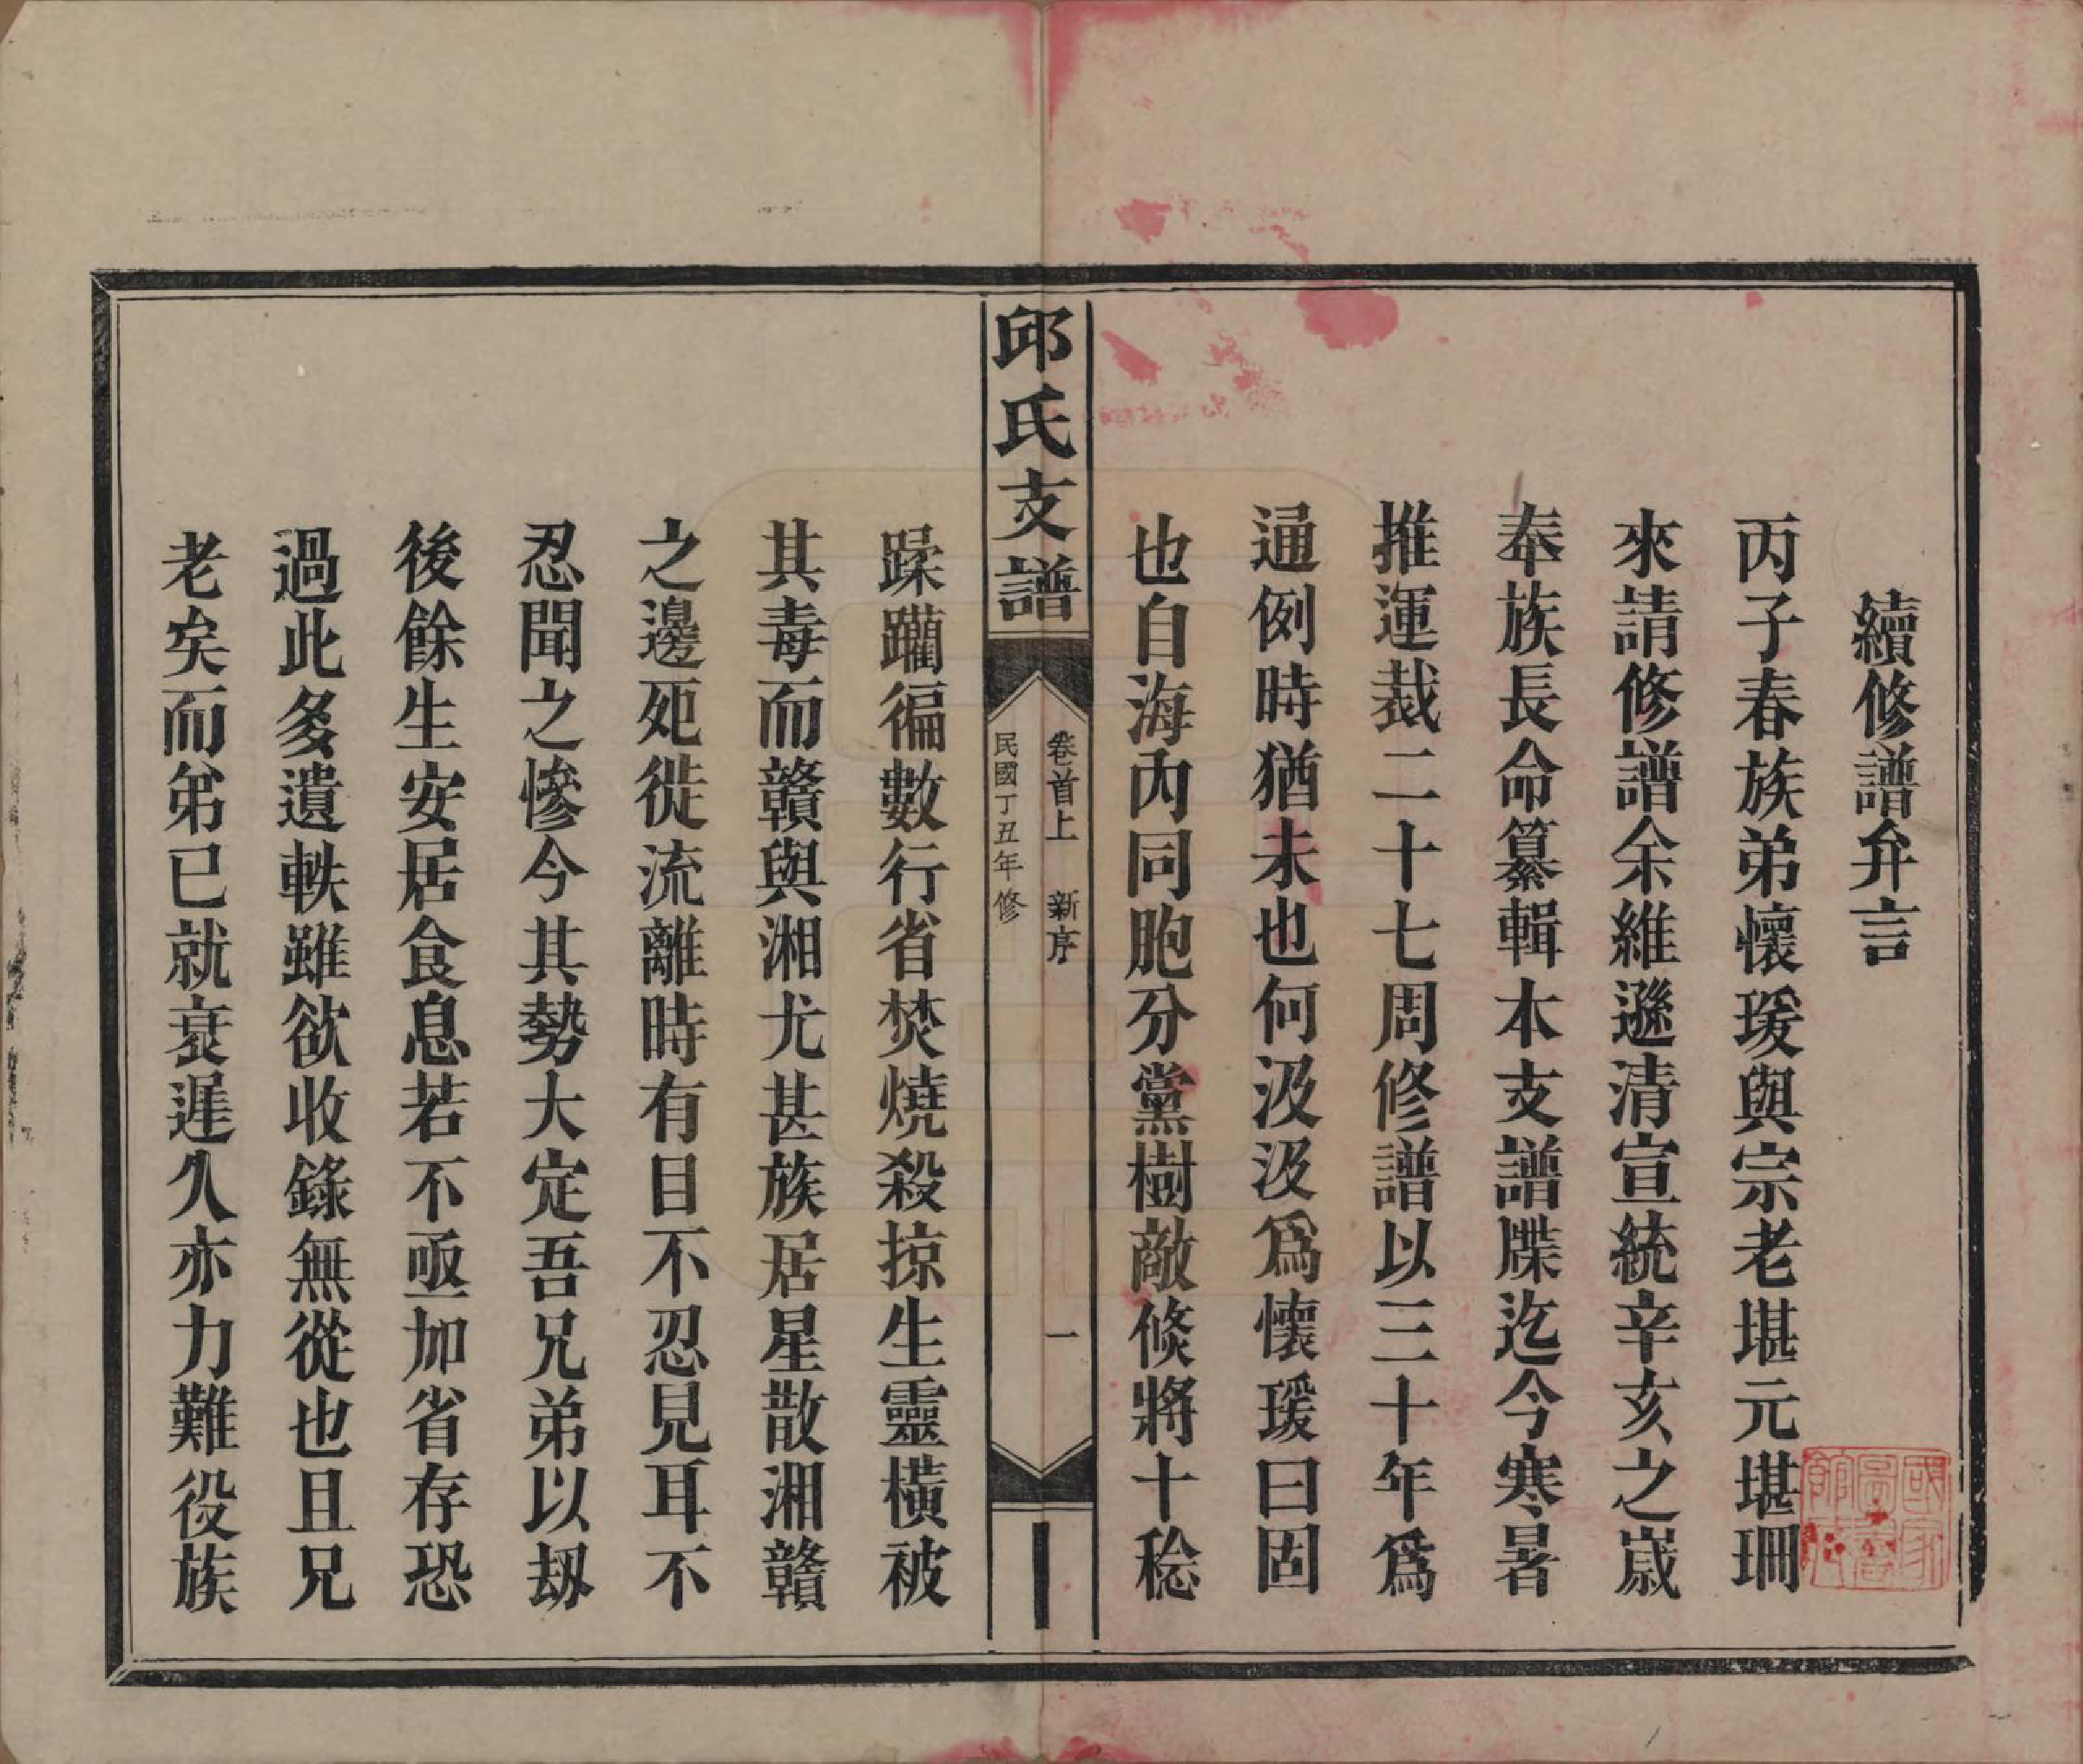 續修譜弁言
丙子春族弟懷瑗與宗老堪元堪珊
來請修譜余維遜清宣統辛亥之歲
奉族長命纂輯本支譜牒迄今寒暑
推運裁二十七周修譜以三十年爲
通例時猶未也何汲汲爲懷瑗曰固
也自海內同胞分黨樹敵倐將十稔
邱氏支譜
卷首上 新序
一
民國丁丑年修
蹂躪徧數行省焚燒殺掠生靈橫被
其毒而贛與湘尤甚族居星散湘贛
之邊死徙流離時有目不忍見耳不
忍聞之慘今其勢大定吾兄弟以刼
後餘生安居食息若不亟加省存恐
過此多遺軼雖欲收錄無從也且兄
老矣而弟已就衰遲久亦力難役族
國家
圖書
館藏